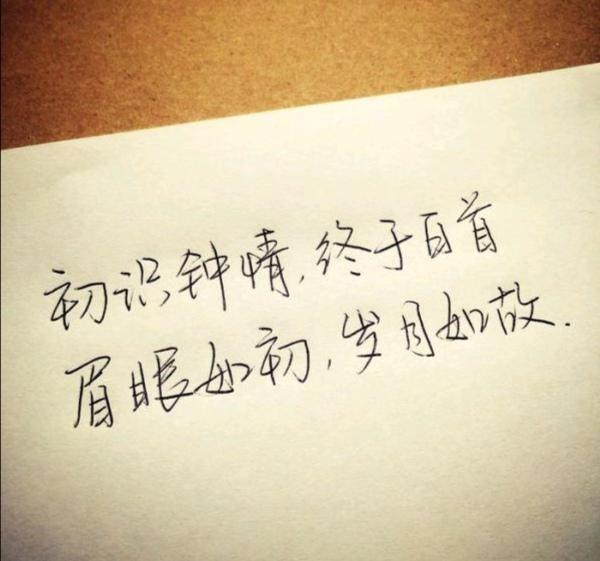 初识钟情,终于白首
眉眼如初,岁月如故.